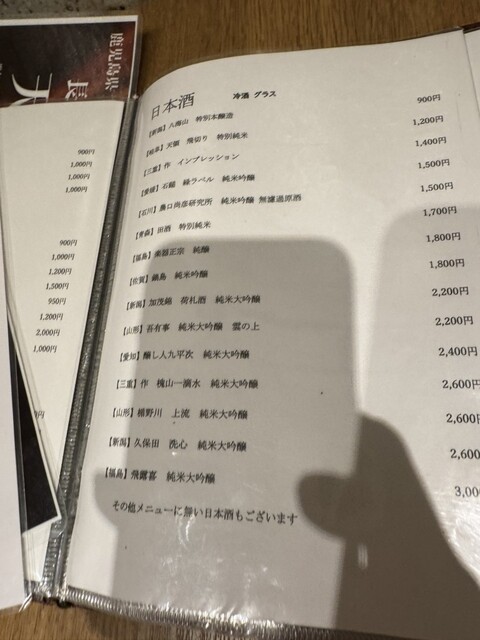 鹿児島県
900円
1,000円
1,000円
1,000円
900円
1,000円
1,200円
1,500円
950円
1,200円
2,000円
1,000円
日本酒 冷酒 グラス
【新潟】八海山 特別本醸造 900円
【岐阜】天領 飛切り 特別純米 1,200円
【三重】作 インプレッション 1,400円
【愛媛】石鎚 緑ラベル 純米吟醸 1,500円
【石川】農口尚彦研究所 純米吟醸 無濾過原酒 1,500円
【青森】田酒 特別純米 1,700円
【福島】楽器正宗 純醸 1,800円
【佐賀】鍋島 純米吟醸 1,800円
【新潟】加茂錦 荷札酒 純米大吟醸 2,200円
【山形】吾有事 純米大吟醸 雲の上 2,200円
【愛知】醸し人九平次 純米大吟醸 2,400円
【三重】作 槐山一滴水 純米大吟醸 2,600円
【山形】楯野川 上流 純米大吟醸 2,600円
【新潟】久保田 洗心 純米大吟醸 2,600
【福島】飛露喜 純米大吟醸 3,00
その他メニューに無い日本酒もございます